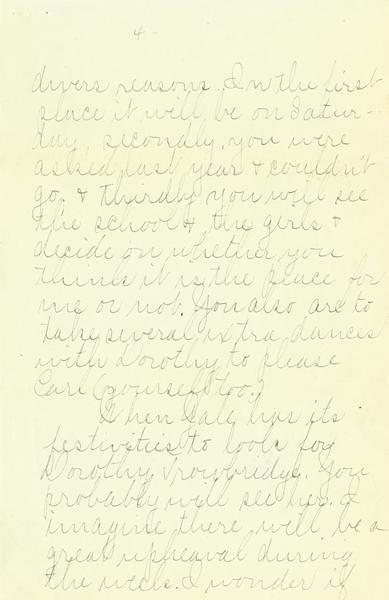 4 -
divers reasons. In the first
place it will be on Satur-
day, secondly, you were
asked last year & couldn't
go, & thirdly you will see
the school & the girls &
decide on whether you
think it is the place for
me or not. You also are to
take several extra dances
with Dorothy to please
Carl (yourself too?)
Then Yale has its
festivities to look for
Dorothy Trowbridge. You
probably will see her. I
imagine there will be a
great upheaval during
the week. I wonder if